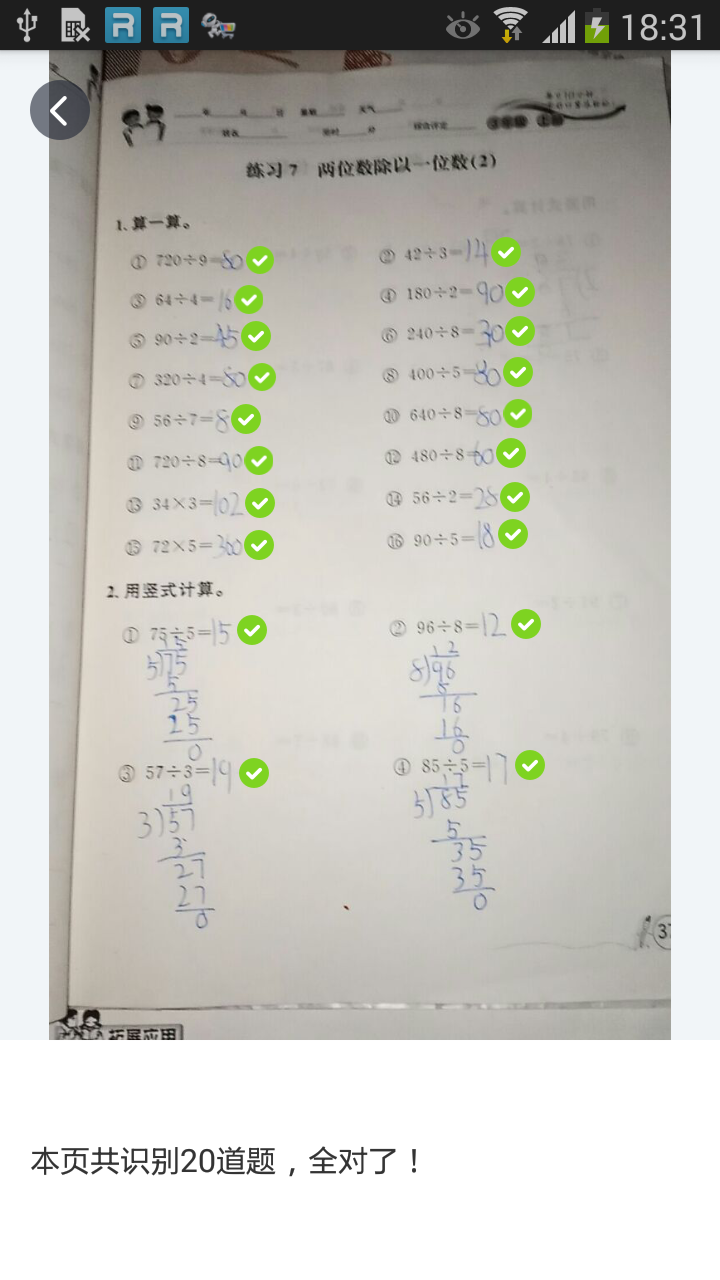 18:31
练习7 两位数除以一位数(2)
1.算一算。
① 720÷9=80 ② 42÷3=14
③ 64÷4=16 ④ 180÷2=90
⑤ 90÷2=45 ⑥ 240÷8=30
⑦ 320÷4=80 ⑧ 400÷5=80
⑨ 56÷7=8 ⑩ 640÷8=80
⑪ 720÷8=90 ⑫ 480÷8=60
⑬ 34×3=102 ⑭ 56÷2=28
⑮ 72×5=360 ⑯ 90÷5=18
2.用竖式计算。
① 75÷5=15 ② 96÷8=12
15 12
5)75 8)96
5 8
25 16
25 16
0 0
③ 57÷3=19 ④ 85÷5=17
19 17
3)57 5)85
3 5
27 35
27 35
0 0
37
拓展应用
本页共识别20道题，全对了！